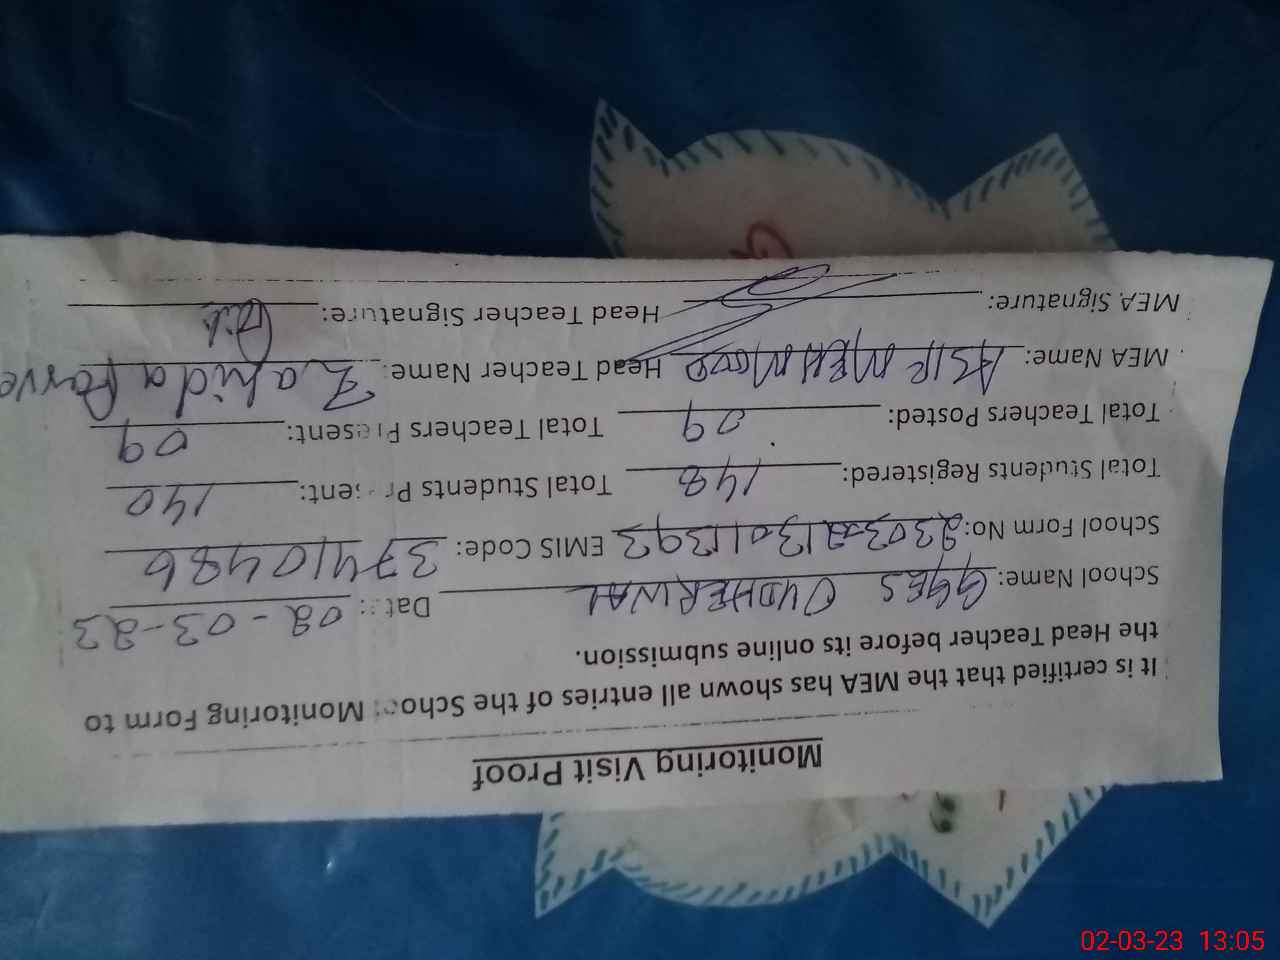 Monitoring Visit Proof
It is certified that the MEA has shown all entries of the School Monitoring Form to
the Head Teacher before its online submission.
School Name: GGES OUDHERWAL Date: 02-03-23
School Form No: EMIS Code: 37410486
Total Students Registered: 148 Total Students Present: 140
Total Teachers Posted: 09 Total Teachers Present: 09
MEA Name: ASIF MEHMOOD Head Teacher Name: Zahida Parve
MEA Signature: Head Teacher Signature:
02-03-23 13:05